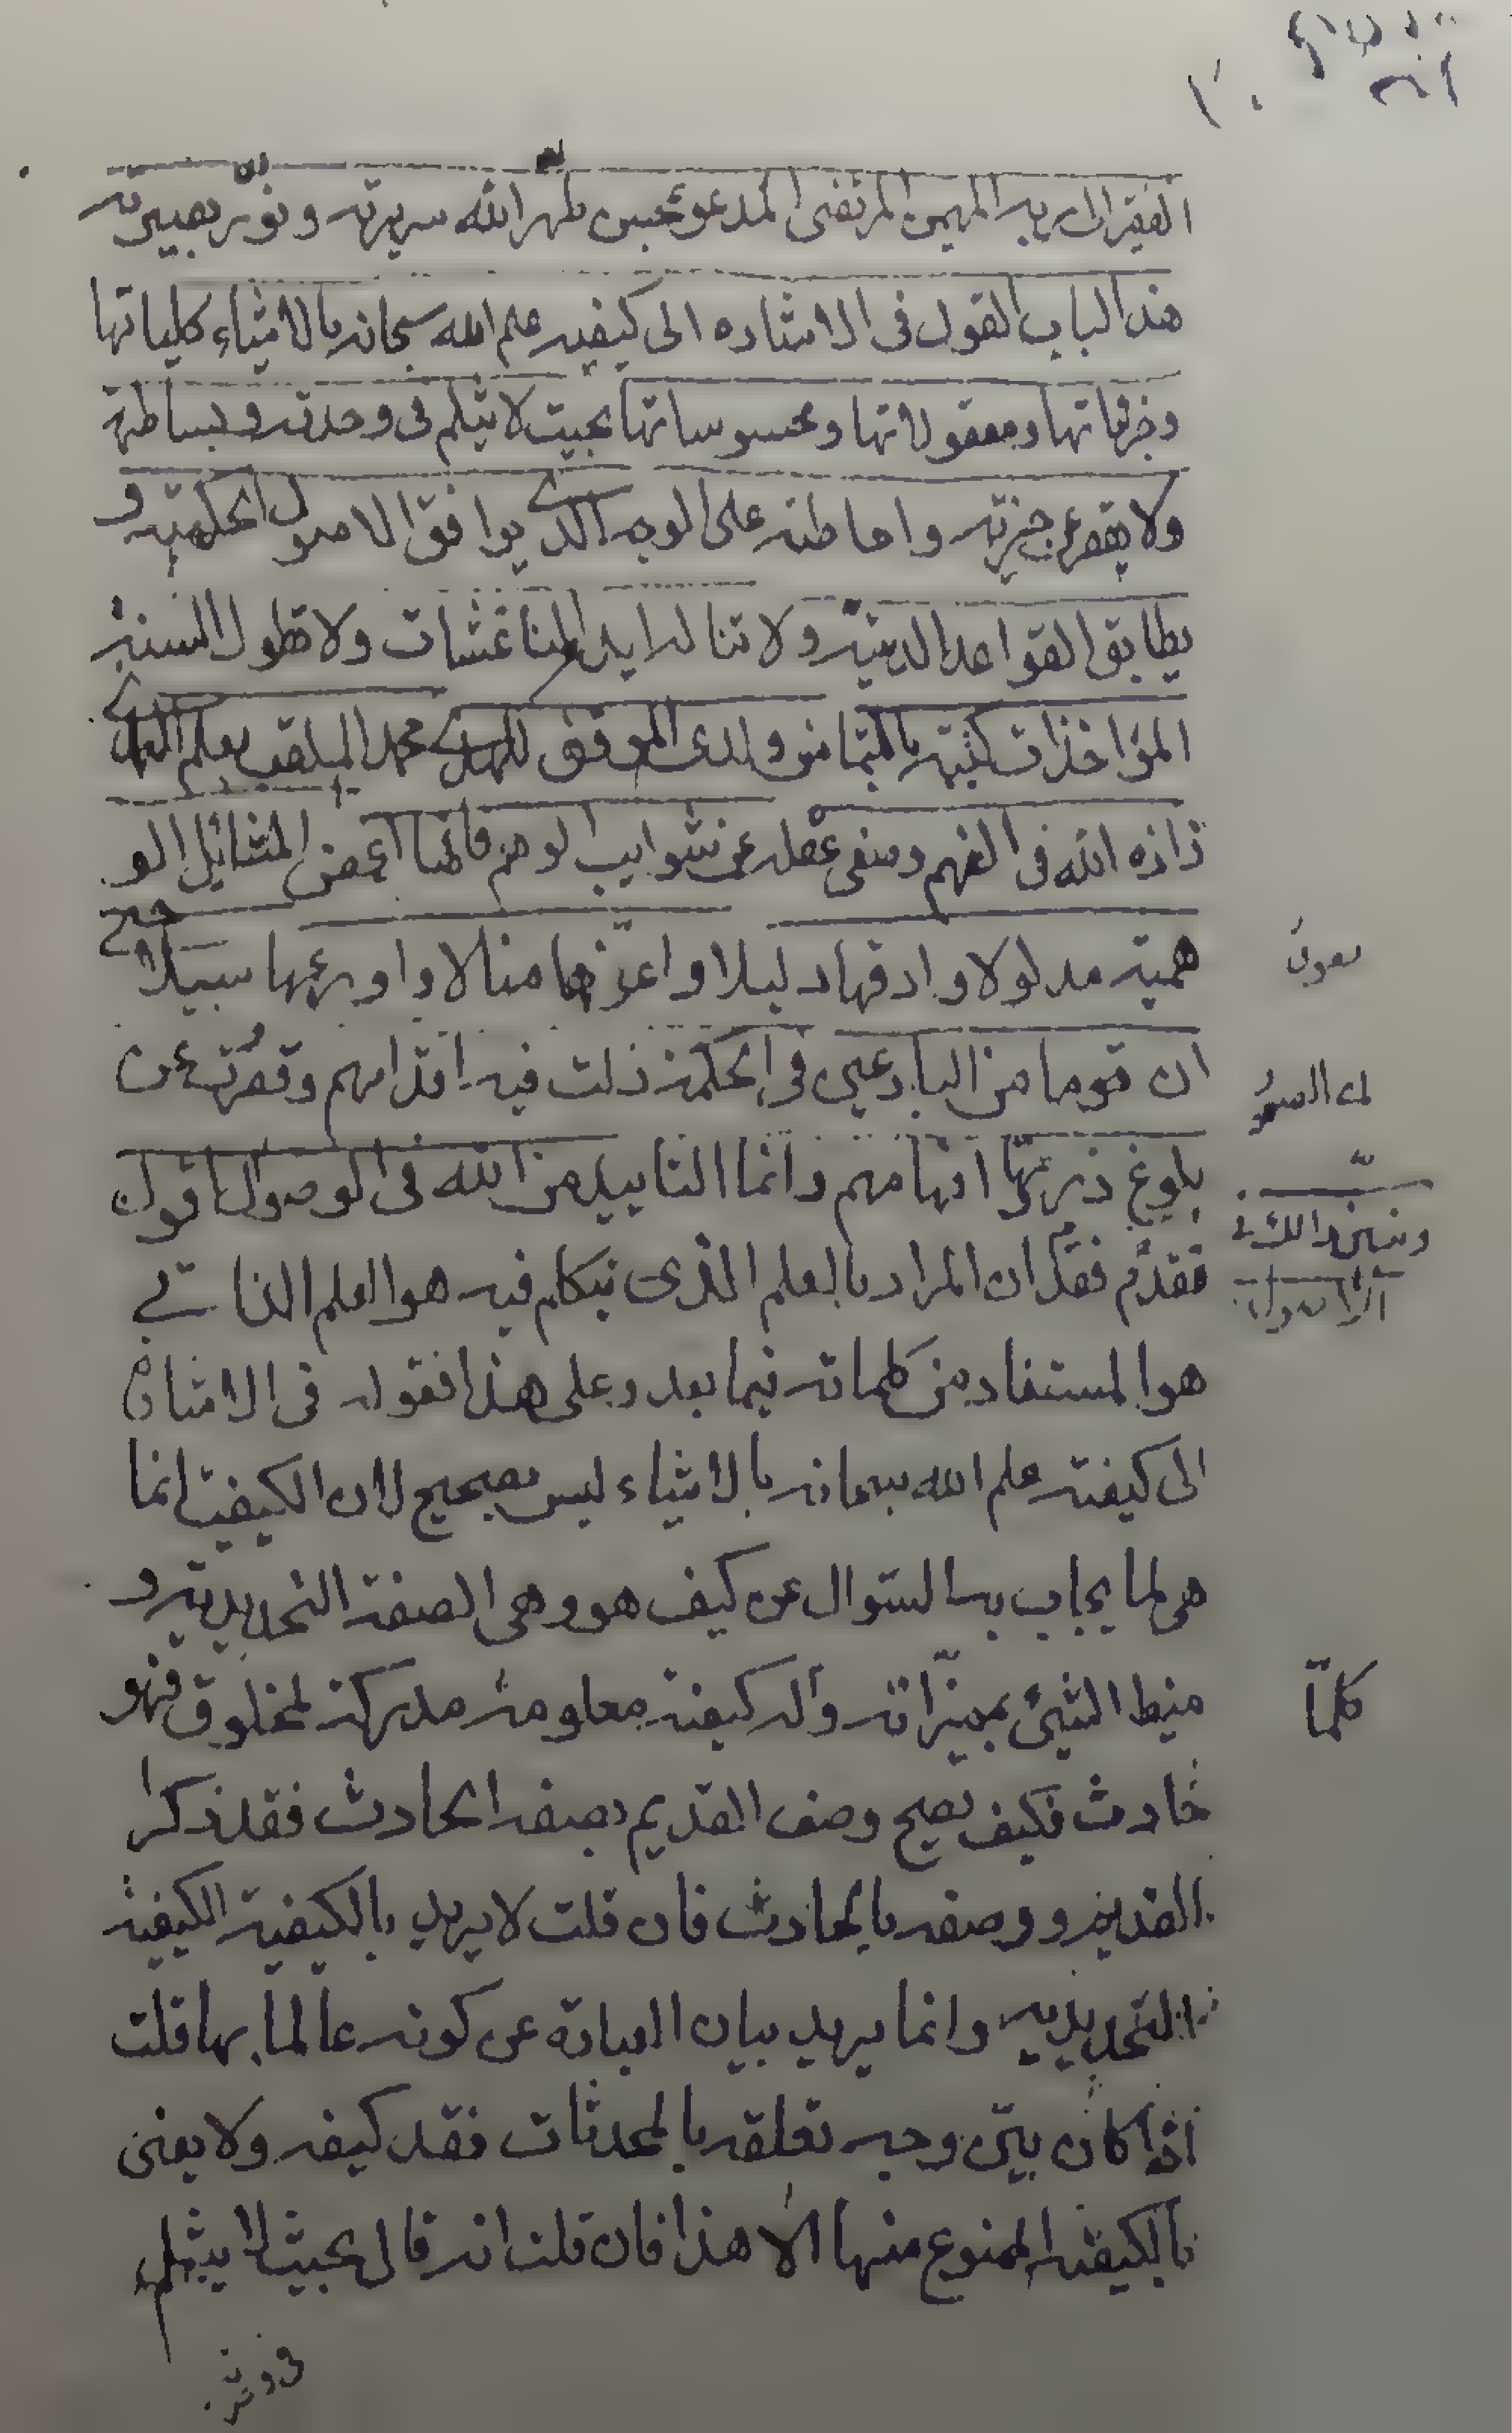 الفقير الى ربه المهيمن المرتضى المدعو بمحسن طهر الله سريرته ونور بصيرته
هذا لباب القول فى الاشاره الى كيفيه علم الله سبحانه بالاشياء كلياتها
وجزئياتها ومعقولاتها ومحسوساتها بحيث لا ينثلم فى وحدته وبساطته
ولا يقدح واحاطته على الوجه الذى يوافق الاصول الحكميه و
يطابق القواعد الدينيه ولا تناله ايدى المناقشات ولا تطول السنه
المؤاخذات كتبته بالتماس ولدى الموفق للهدى محمد الملقب بعلم الهدى
زاده الله فى الفهم وصفى عقله عن شوايب الوهم فانها اغمض المسائل
همية مدلولا وادقها دليلا واعزها منالا واوعرها سبيلا حتى
ان قوما من البارعين فى الحكمة زلت فيه اقدامهم وقصرت عن
بلوغ ذروتها افهامهم وانما التاييد من الله فى الوصول اقول
فقدم ان المراد بالعلم الذى نتكلم فيه هو العلم الذاتى
هو المستفاد من كلماته فيما بعد وعلى هذا فقوله فى الاشارة
الى كيفيته علم الله سبحانه بالاشياء ليس بصحيح لان الكيفية انما
هى لما يجاب به السئوال عن كيف هو وهى الصفة التحديديه و
الشىء بمميزاته وله كيفية معلومة مدركة لمخلوق فهو
حادث فكيف يصح وصف القديم بصفه الحادث فقد ذكر
القديم ووصفه بالحادث فان قلت لا يريد بالكيفية الكيفيه
التحديديه وانما يريد بيان العبارة عن كونه عالما بها قلت
اذا كان بين وجه تعلقه بالمحدثات فقد كيفه ولا يعنى
بالكيفيه الممنوع منها الا هذا فان قلت انه قال بحيث لا ينثلم
كلما